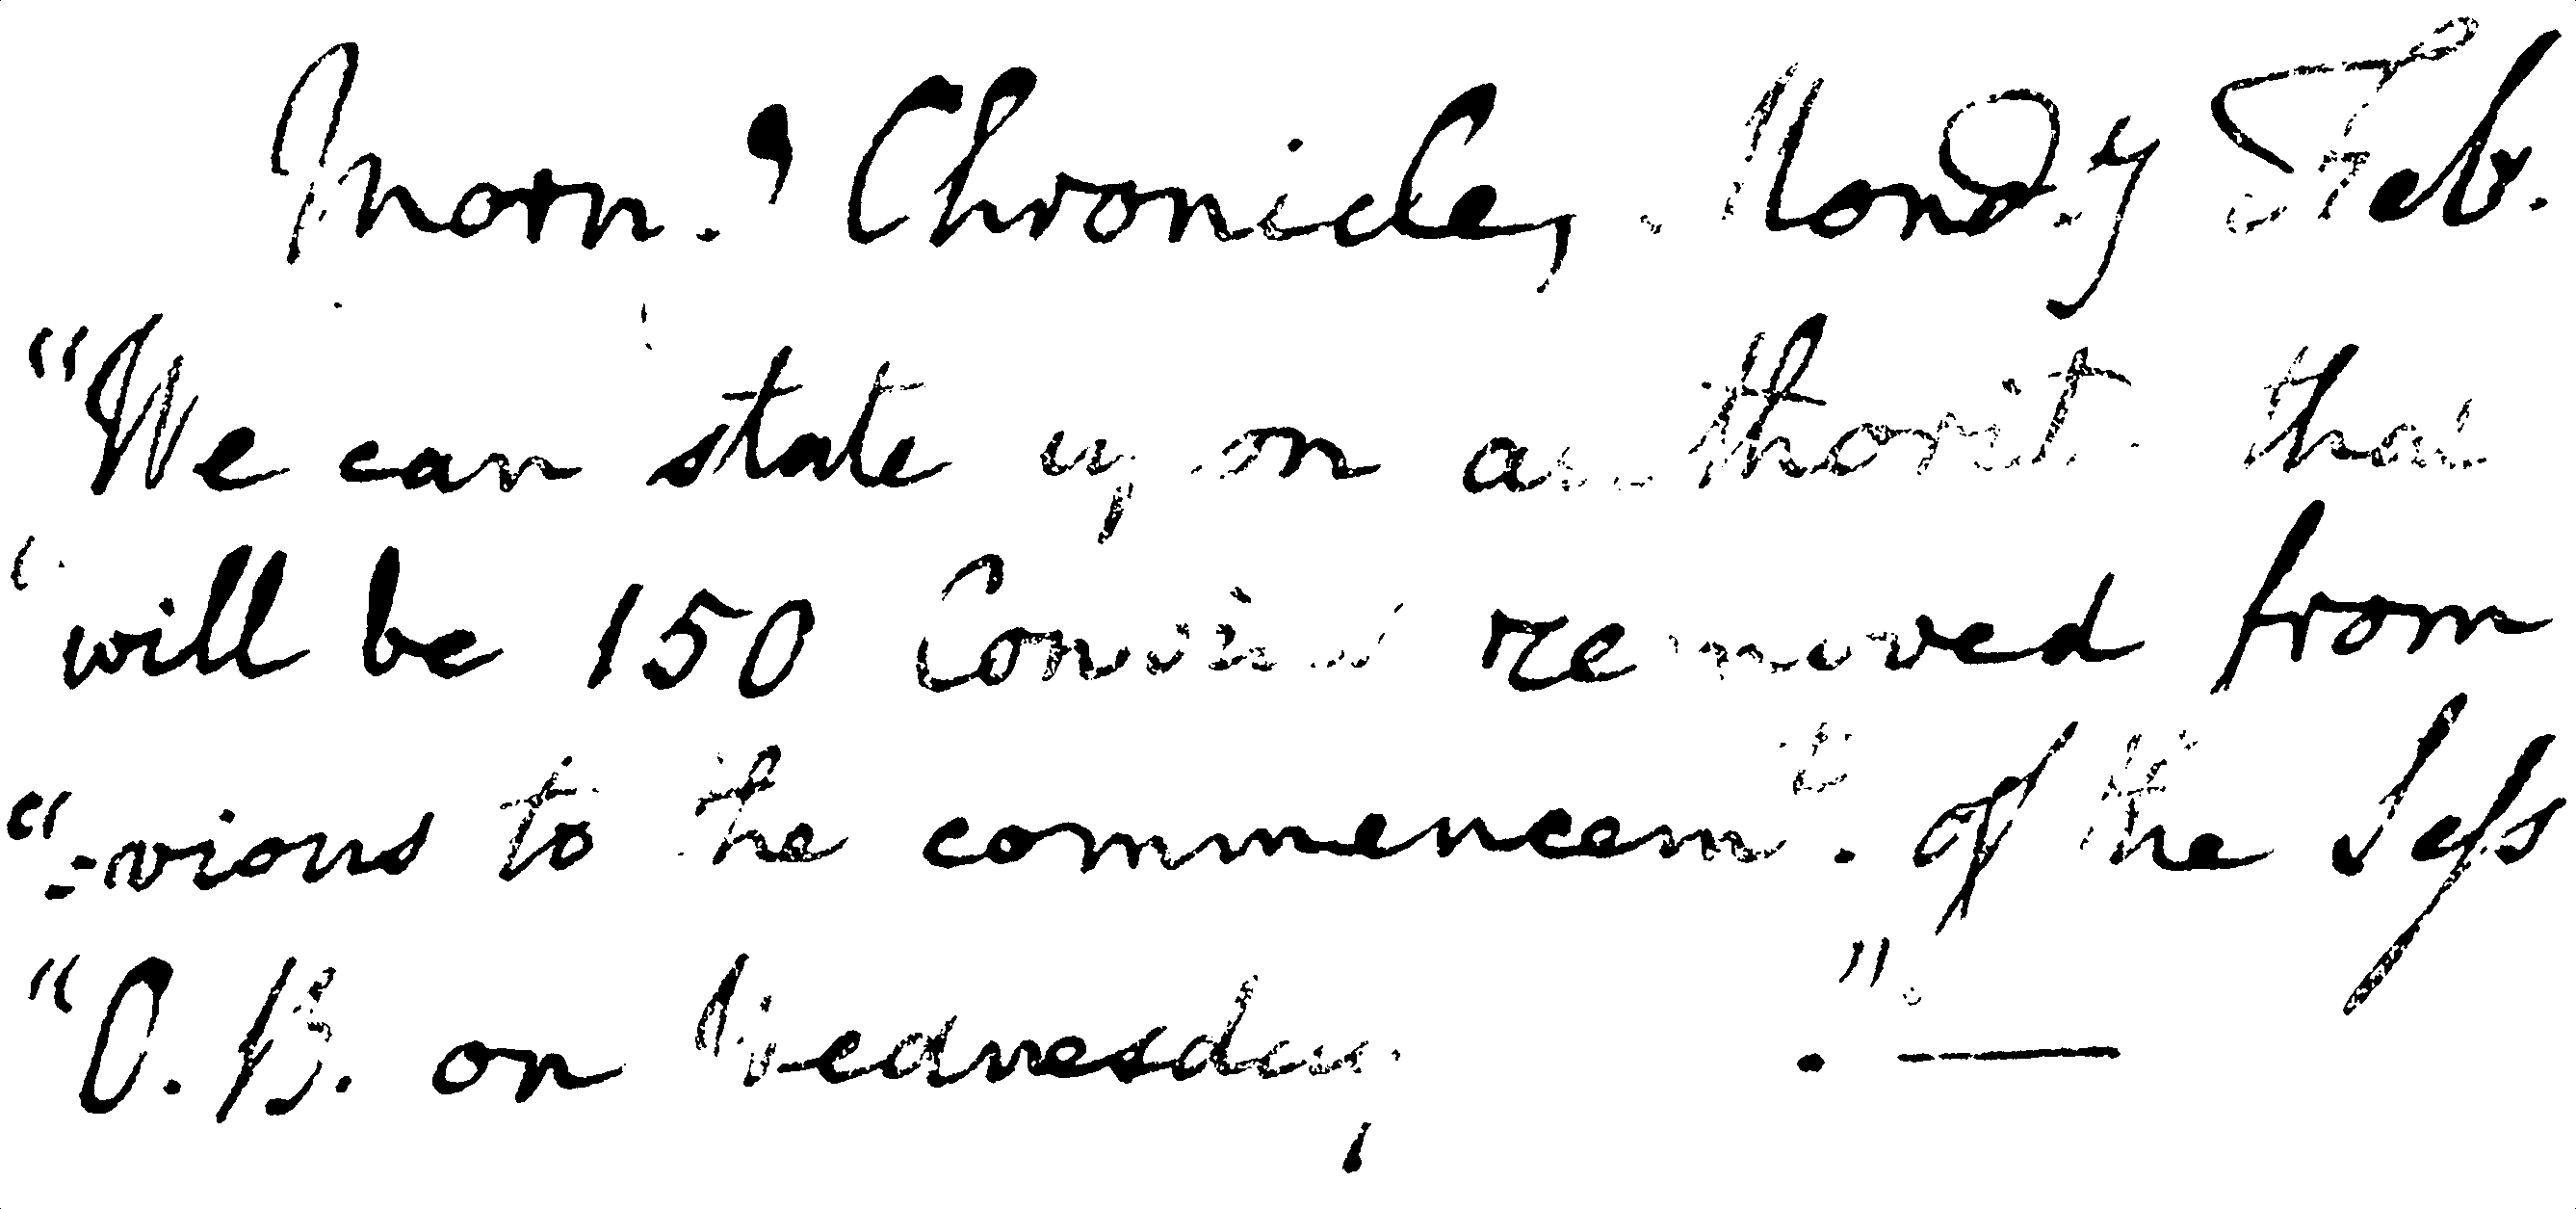 Morn.g Chronicle, Mond.y Feb.
"We can state upon authority that
"will be 150 Convicts removed from
"=vious to the commencem.t of the Sess
"O.B. on Wednesday ." —